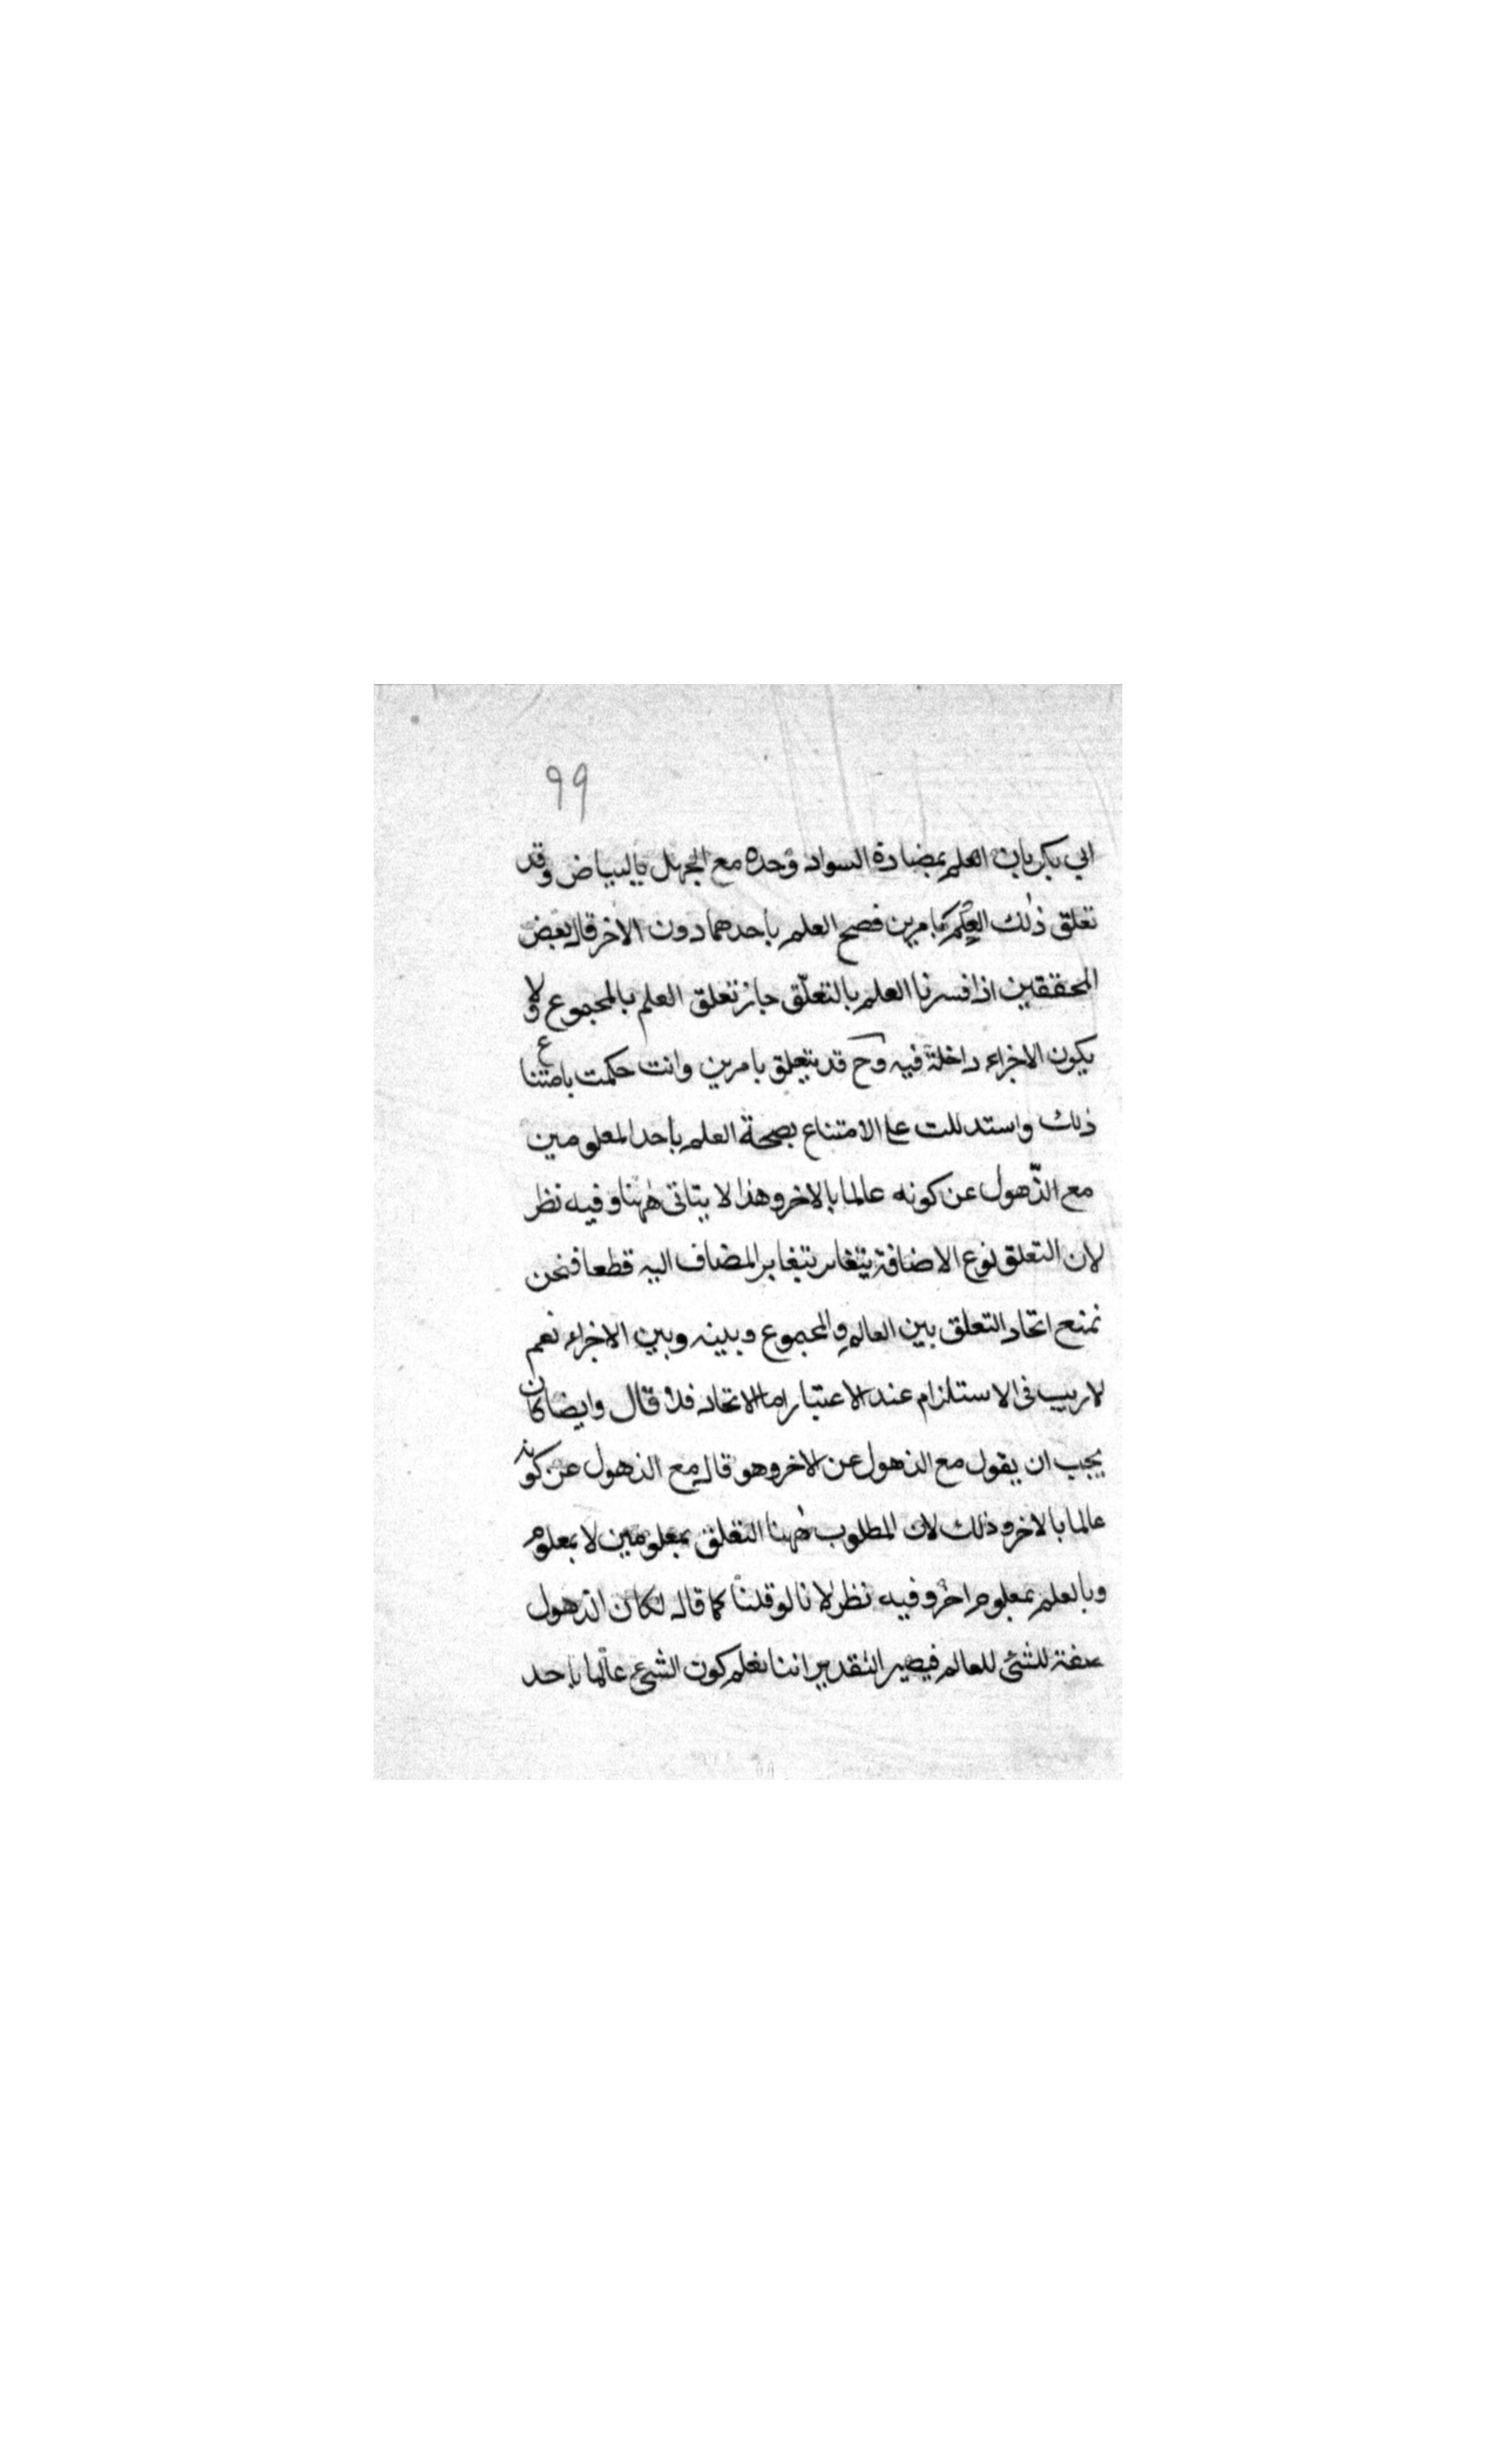 99
ابي بكر بان العلم بمضادة السواد وحده مع الجهل بالبياض وقد
تعلق ذلك العلم بامرين فصح العلم باحدهما دون الاخر قال بعض
المحققين اذا فسرنا العلم بالتعلّق جاز تعلق العلم بالمجموع ولا
يكون الاجزاء داخلة فيه وح قد يتعلق بامرين وانت حكمت بامتناع
ذلك واستدللت على الامتناع بصحة العلم باحد المعلومين
مع الذّهول عن كونه عالما بالاخر وهذا لا يتاتى ههنا وفيه نظر
لان التعلق نوع الاضافة يتغاير بتغاير المضاف اليه قطعا فنحن
نمنع اتحاد التعلق بين العالم والمجموع وبينه وبين الاجزاء نعم
لا ريب فى الاستلزام عند الاعتبار اما الاتحاد فلا قال وايضا كان
يجب ان يقول مع الذهول عن الاخر وهو قال مع الذهول عن كونه
عالما بالاخر وذلك لان المطلوب ههنا التعلق بمعلومين لا بمعلوم
وبالعلم بمعلوم اخر وفيه نظر لانا لو قلنا كما قاله لكان الذهول
صفة للشئ للعالم فيصير التقدير اننا نعلم كون الشئ عالما باحد